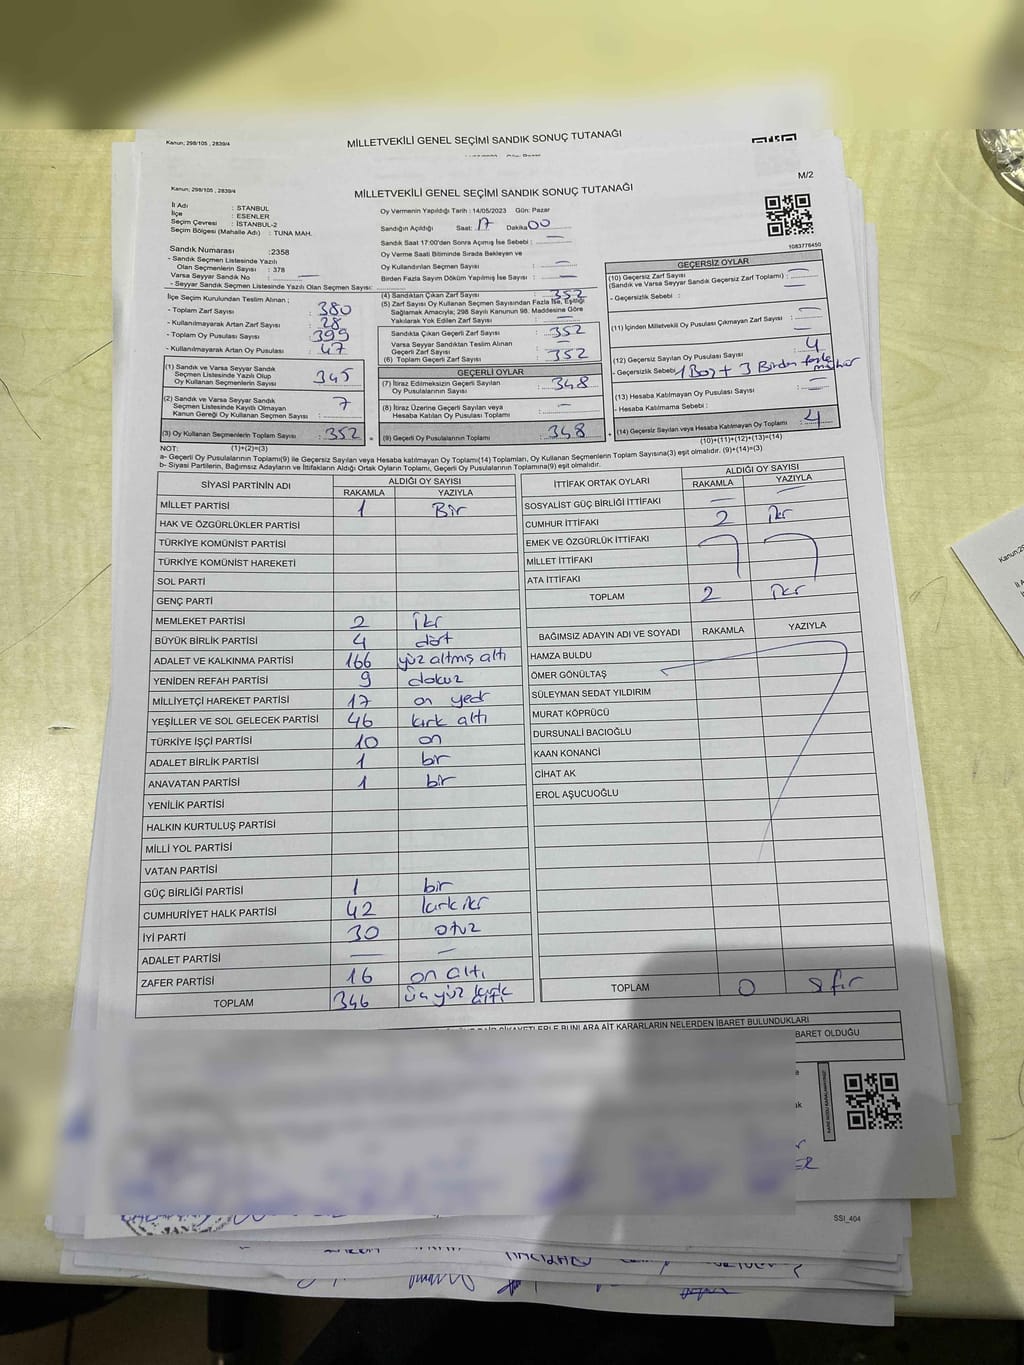 Kanun; 298/105 , 2839/4
MİLLETVEKİLİ GENEL SEÇİMİ SANDIK SONUÇ TUTANAĞI
M/2
Kanun; 298/105 , 2839/4
MİLLETVEKİLİ GENEL SEÇİMİ SANDIK SONUÇ TUTANAĞI
İl Adı : STANBUL
İlçe : ESENLER
Seçim Çevresi : İSTANBUL-2
Seçim Bölgesi (Mahalle Adı) : TUNA MAH.
Sandık Numarası :2358
- Sandık Seçmen Listesinde Yazılı
Olan Seçmenlerin Sayısı : 378
Varsa Seyyar Sandık No : —
- Seyyar Sandık Seçmen Listesinde Yazılı Olan Seçmen Sayısı:
Oy Vermenin Yapıldığı Tarih : 14/05/2023 Gün: Pazar
Sandığın Açıldığı Saat: 17 Dakika 00
Sandık Saat 17:00'den Sonra Açımış İse Sebebi : —
Oy Verme Saati Bitiminde Sırada Bekleyen ve
Oy Kullandırılan Seçmen Sayısı : —
Birden Fazla Sayım Döküm Yapılmış İse Sayısı : —
1083776450
İlçe Seçim Kurulundan Teslim Alınan ;
- Toplam Zarf Sayısı : 380
- Kullanılmayarak Artan Zarf Sayısı : 28
- Toplam Oy Pusulası Sayısı : 395
- Kullanılmayarak Artan Oy Pusulası : 47
(1) Sandık ve Varsa Seyyar Sandık
Seçmen Listesinde Yazılı Olup
Oy Kullanan Seçmenlerin Sayısı : 345
(2) Sandık ve Varsa Seyyar Sandık
Seçmen Listesinde Kayıtlı Olmayan
Kanun Gereği Oy Kullanan Seçmen Sayısı : 7
(3) Oy Kullanan Seçmenlerin Toplam Sayısı : 352
(4) Sandıktan Çıkan Zarf Sayısı : 352
(5) Zarf Sayısı Oy Kullanan Seçmen Sayısından Fazla İse, Eşitliği
Sağlamak Amacıyla; 298 Sayılı Kanunun 98. Maddesine Göre
Yakılarak Yok Edilen Zarf Sayısı : —
Sandıkta Çıkan Geçerli Zarf Sayısı : 352
Varsa Seyyar Sandıktan Teslim Alınan
Geçerli Zarf Sayısı : —
(6) Toplam Geçerli Zarf Sayısı : 352
GEÇERLİ OYLAR
(7) İtiraz Edilmeksizin Geçerli Sayılan
Oy Pusulalarının Sayısı : 348
(8) İtiraz Üzerine Geçerli Sayılan veya
Hesaba Katılan Oy Pusulası Toplamı : —
(9) Geçerli Oy Pusulalarının Toplamı : 348
GEÇERSİZ OYLAR
(10) Geçersiz Zarf Sayısı : —
(Sandık ve Varsa Seyyar Sandık Geçersiz Zarf Toplamı) : —
- Geçersizlik Sebebi :
(11) İçinden Milletvekili Oy Pusulası Çıkmayan Zarf Sayısı : —
(12) Geçersiz Sayılan Oy Pusulası Sayısı : 4
- Geçersizlik Sebebi : 1 Boş + 3 Birden fazla mühür
(13) Hesaba Katılmayan Oy Pusulası Sayısı : —
- Hesaba Katılmama Sebebi :
(14) Geçersiz Sayılan veya Hesaba Katılmayan Oy Toplamı : 4
(10)+(11)+(12)+(13)=(14)
NOT: (1)+(2)=(3)
a- Geçerli Oy Pusulalarının Toplamı(9) ile Geçersiz Sayılan veya Hesaba Katılmayan Oy Toplamı(14) Toplamları, Oy Kullanan Seçmenlerin Toplam Sayısına(3) eşit olmalıdır. (9)+(14)=(3)
b- Siyasi Partilerin, Bağımsız Adayların ve İttifakların Aldığı Ortak Oyların Toplamı, Geçerli Oy Pusulalarının Toplamına(9) eşit olmalıdır.
SİYASİ PARTİNİN ADI ALDIĞI OY SAYISI
RAKAMLA YAZIYLA
MİLLET PARTİSİ 1 Bir
HAK VE ÖZGÜRLÜKLER PARTİSİ
TÜRKİYE KOMÜNİST PARTİSİ
TÜRKİYE KOMÜNİST HAREKETİ
SOL PARTİ
GENÇ PARTİ
MEMLEKET PARTİSİ 2 iki
BÜYÜK BİRLİK PARTİSİ 4 dört
ADALET VE KALKINMA PARTİSİ 166 yüz altmış altı
YENİDEN REFAH PARTİSİ 9 dokuz
MİLLİYETÇİ HAREKET PARTİSİ 17 on yedi
YEŞİLLER VE SOL GELECEK PARTİSİ 46 kırk altı
TÜRKİYE İŞÇİ PARTİSİ 10 on
ADALET BİRLİK PARTİSİ 1 bir
ANAVATAN PARTİSİ 1 bir
YENİLİK PARTİSİ
HALKIN KURTULUŞ PARTİSİ
MİLLİ YOL PARTİSİ
VATAN PARTİSİ
GÜÇ BİRLİĞİ PARTİSİ 1 bir
CUMHURİYET HALK PARTİSİ 42 kırk iki
İYİ PARTİ 30 otuz
ADALET PARTİSİ — —
ZAFER PARTİSİ 16 on altı
TOPLAM 346 üç yüz kırk altı
İTTİFAK ORTAK OYLARI ALDIĞI OY SAYISI
RAKAMLA YAZIYLA
SOSYALİST GÜÇ BİRLİĞİ İTTİFAKI — —
CUMHUR İTTİFAKI 2 iki
EMEK VE ÖZGÜRLÜK İTTİFAKI
MİLLET İTTİFAKI
ATA İTTİFAKI
TOPLAM 2 iki
BAĞIMSIZ ADAYIN ADI VE SOYADI RAKAMLA YAZIYLA
HAMZA BULDU
ÖMER GÖNÜLTAŞ
SÜLEYMAN SEDAT YILDIRIM
MURAT KÖPRÜCÜ
DURSUNALİ BACIOĞLU
KAAN KONANCİ
CİHAT AK
EROL AŞUCUOĞLU
TOPLAM 0 sıfır
BUNLARA AİT KARARLARIN NELERDEN İBARET BULUNDUKLARI
BARET OLDUĞU
SSI_404